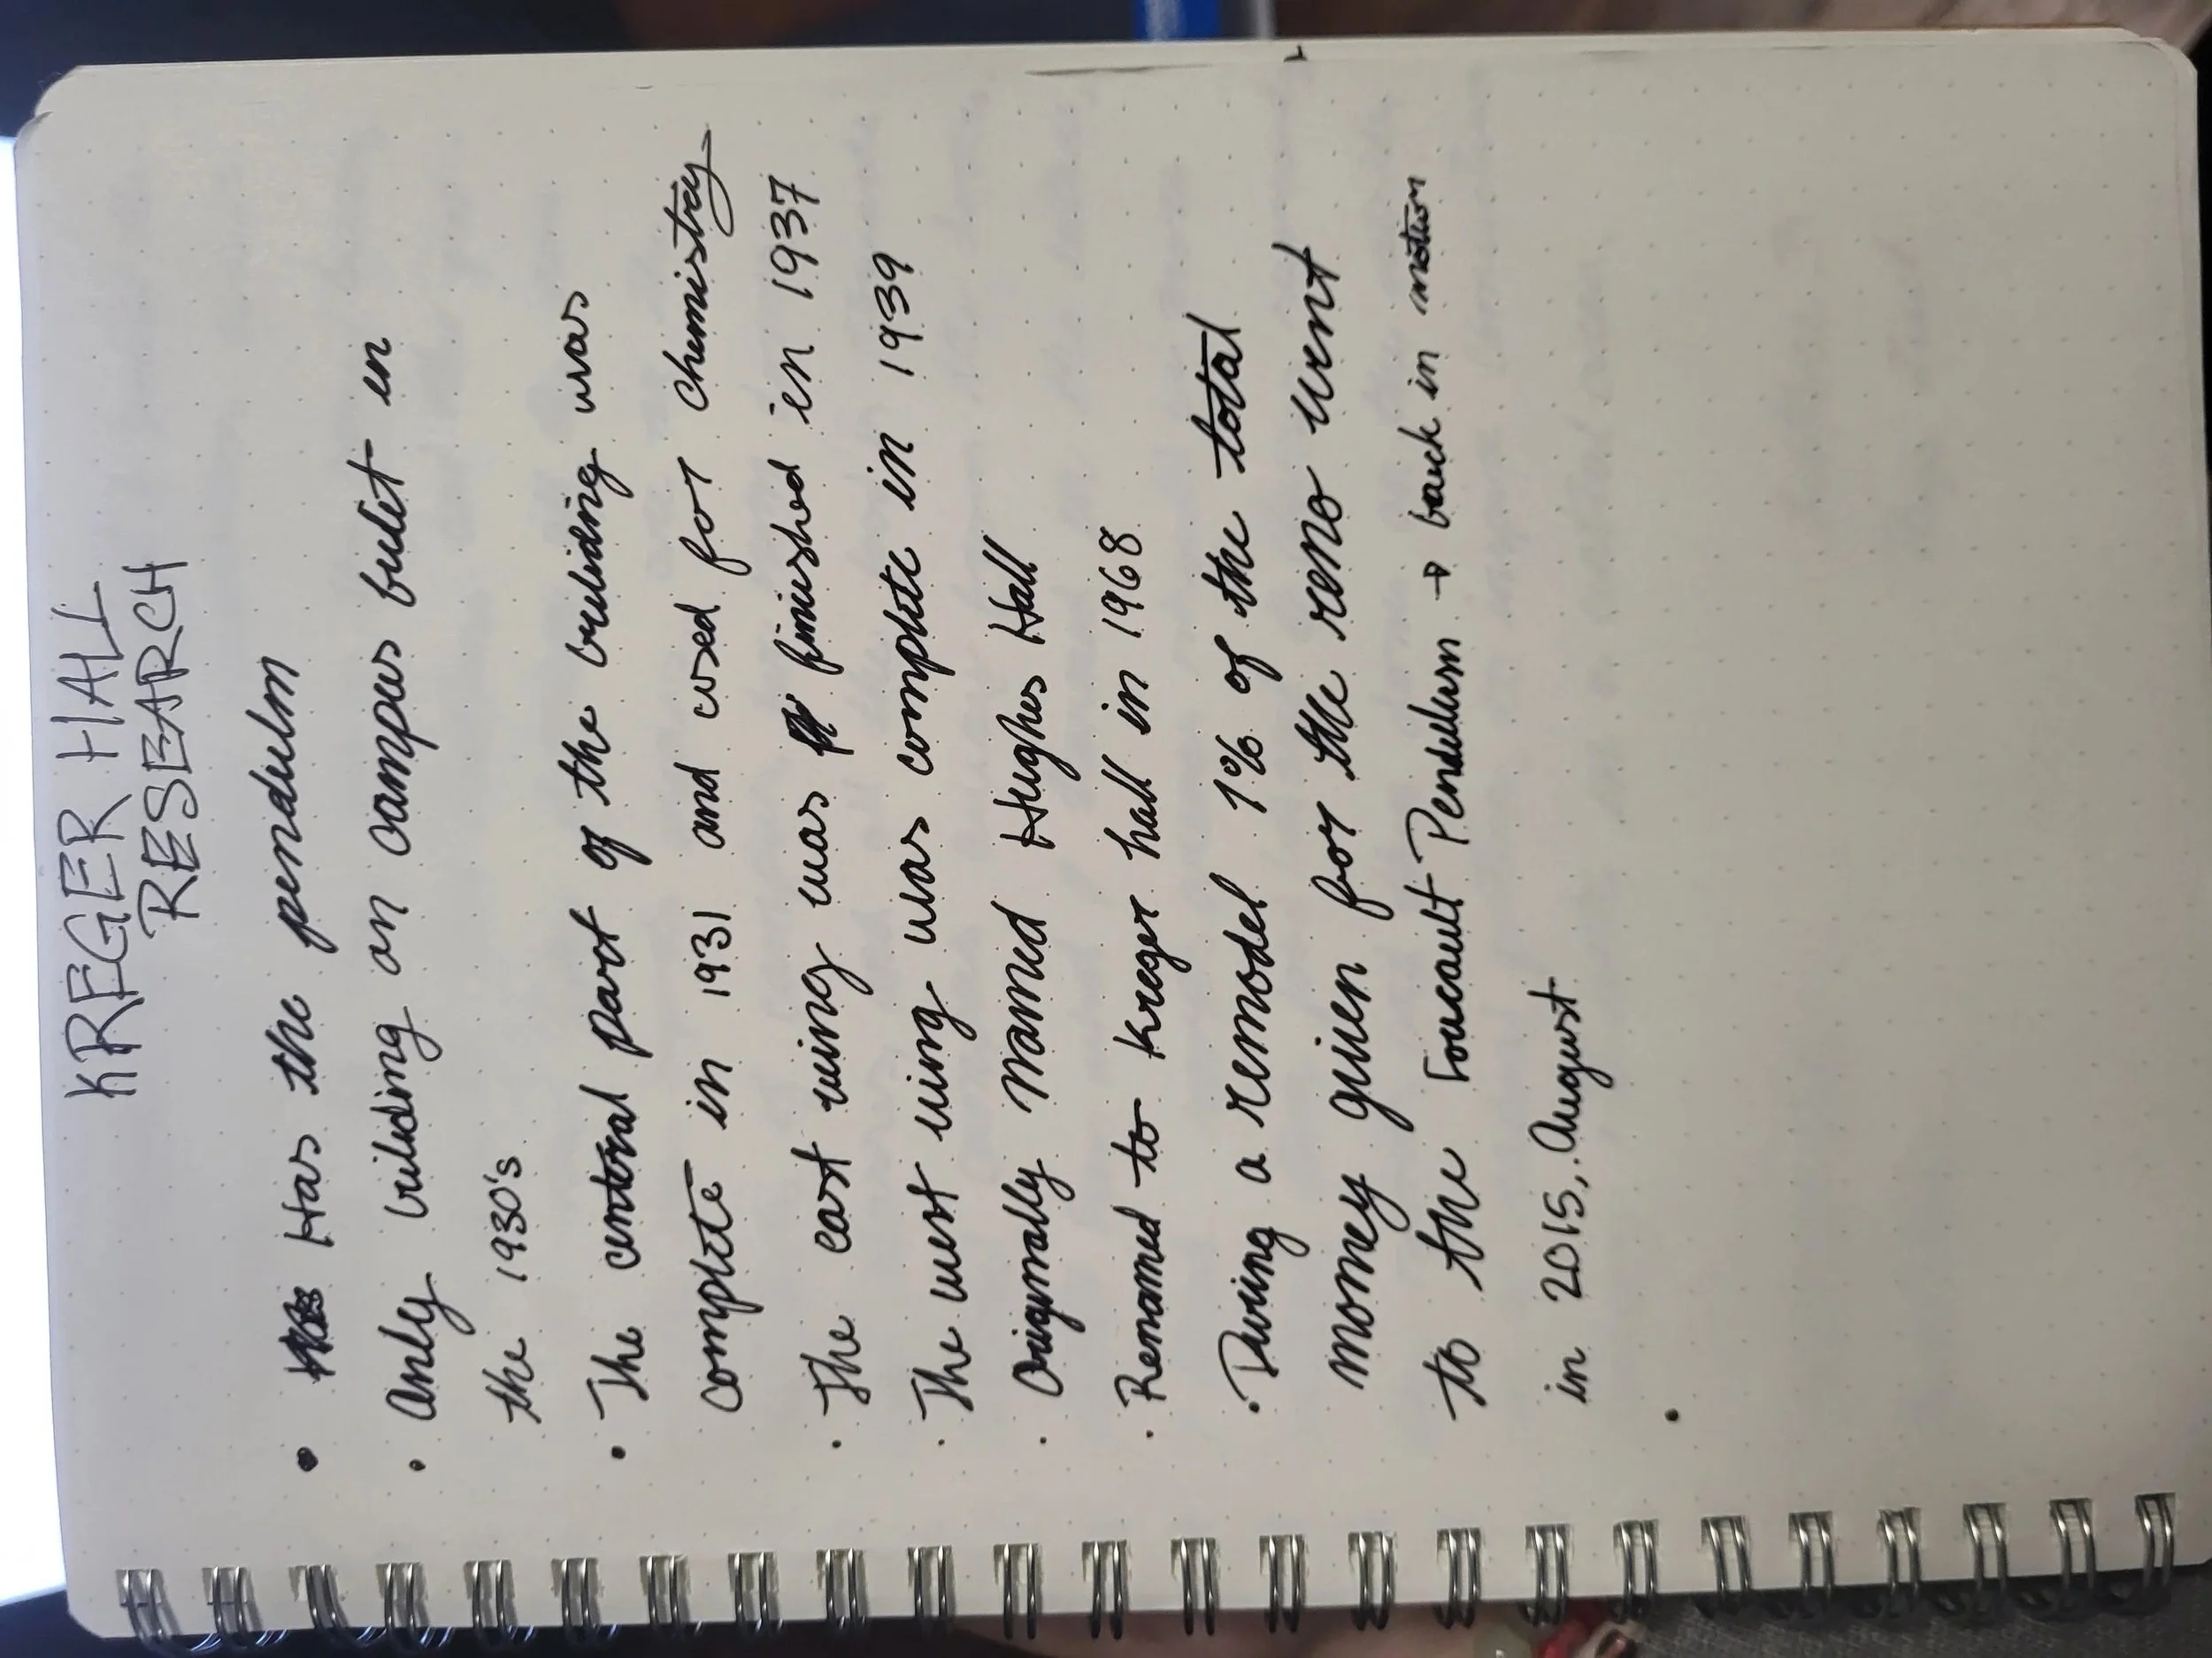 KREGER HALL
RESEARCH
• Has the pendulm
• Only building on campus built in
the 1930's
• The central part of the building was
complete in 1931 and used for chemistry
• The east wing was finished in 1937
• The west wing was complete in 1939
• Originally named Hughes Hall
• Renamed to Kreger hall in 1968
• During a remodel 1% of the total
money given for the reno went
to the Foucault Pendulum → back in motion
in 2015, August
•